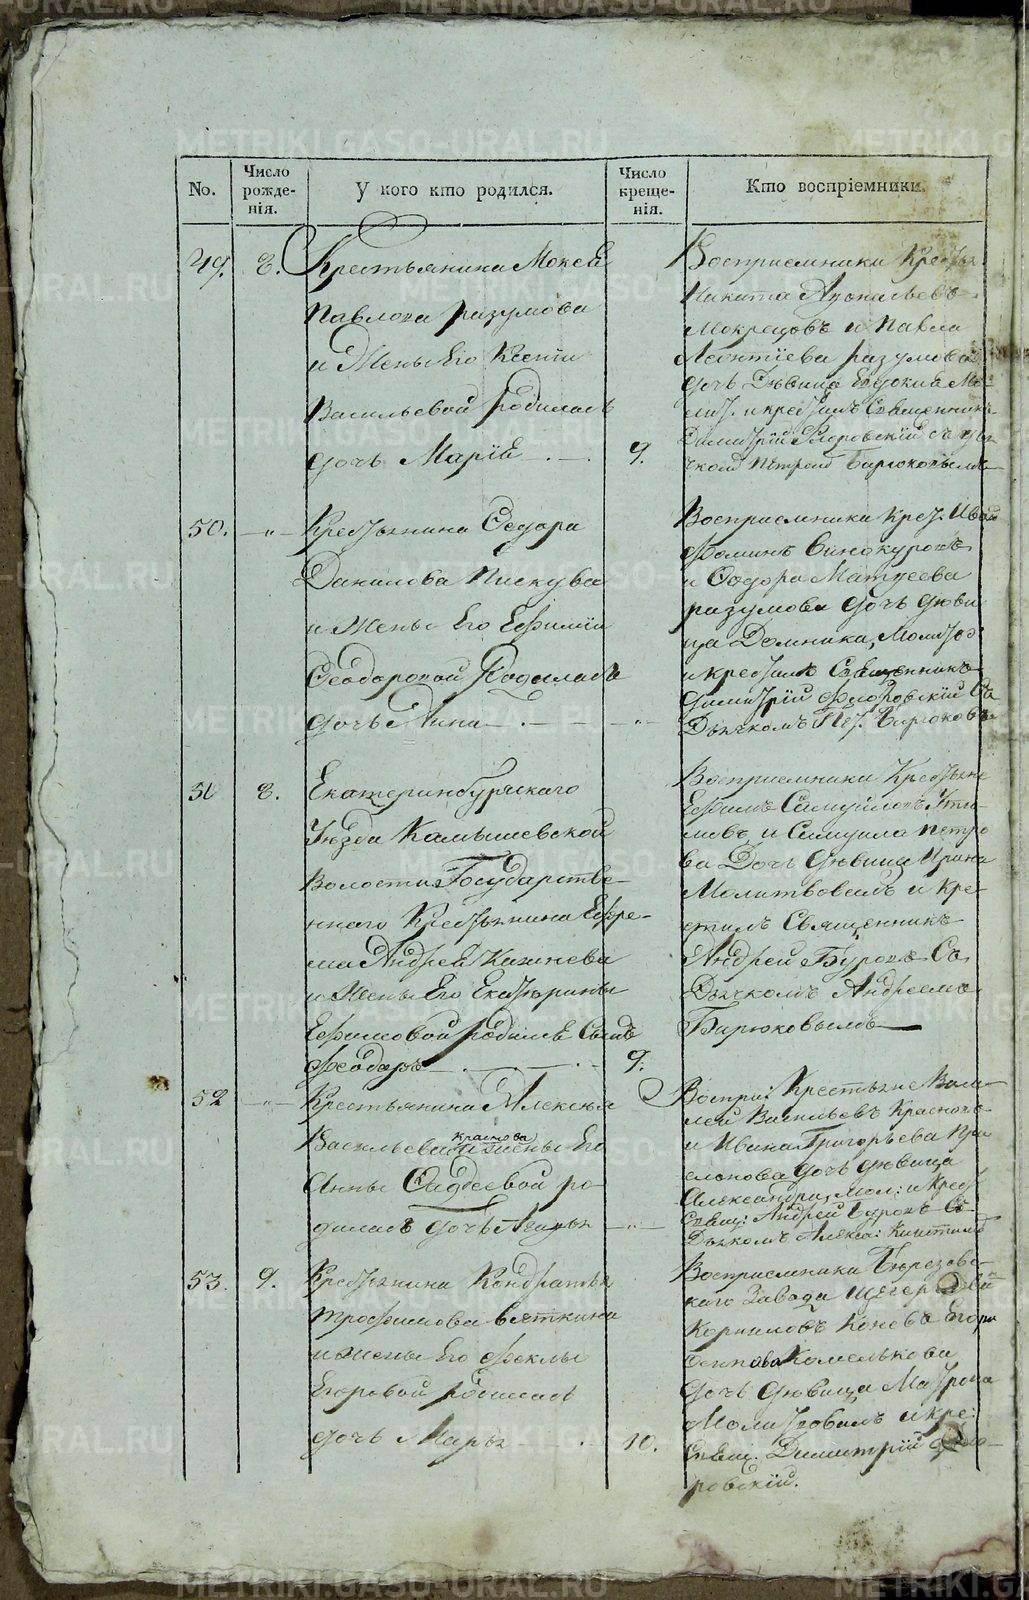 METRIKI.GASO-URAL.RU
No.
Число рожденія.
У кого кто родился.
Число крещенія.
Кто воспріемники.
49.
8.
Крестьянина Мокея
Павлова разумова
и Жены Его Ксеніи
Васильевой родилась
дочь Марія
9.
Восприемники Крестья:
Никита
Мокрецовъ и Павла
Леонтіева разумова
дочь Девица Евдокия Мо:
лит. и крестилъ Священникъ
Димитрій Флоровскій съ дья
чкомъ Петромъ Бирюковымъ
50.
—„—
Крестьянина Федора
Данилова Пискуна
и Жены Его Ефиміи
Феодоровой Родилась
дочь Анна
—„—
Восприемники Крест. Иванъ
Фоминъ Винокуровъ
и Федора Матвеева
разумова дочь деви
ца Домника, Молит:
и крестилъ Священникъ
Димитрій Флоровскій Съ
Дьячкомъ Пет. Бирюков
51
8.
Екатеринбургскаго
Уезда Камышевской
Волости Государстве
ннаго Крестьянина Ефре-
ма Андреева
и Жены Его Екатерины
Ефимовой родился Сынъ
Феодоръ
9.
Восприемники Крестьяне
Ефимъ Самуйловъ
и Самуила Петро
ва Дочь девица Ирина
Молитвовалъ и кре-
стилъ Священникъ
Андрей Буровъ Съ
Дьячкомъ Андреемъ
Бирюковымъ
52
—„—
Крестьянина Алексея
Васильева Краснова и жены Его
Анны Фаддеевой ро-
дилась дочь
—„—
Воспри: Крестьяне Васи
лей Васильевъ Красновъ
и Ивана Григорьева
дочь девица
Александра, мол: и крест
Свящ: Андрей Буровъ Съ
Дьячкомъ Алекса:
53.
9.
Крестьянина Кондратья
Трофимова Вяткина
и жены Его Феклы
Егоровой родилась
дочь Марья
10.
Восприемники Березовс
каго Завода
Корниловъ Коневъ Егора
Осипова Комелькова
дочь девица Матрона
Молитвовалъ и кре:
Свящ. Димитрій Фло
ровскій.